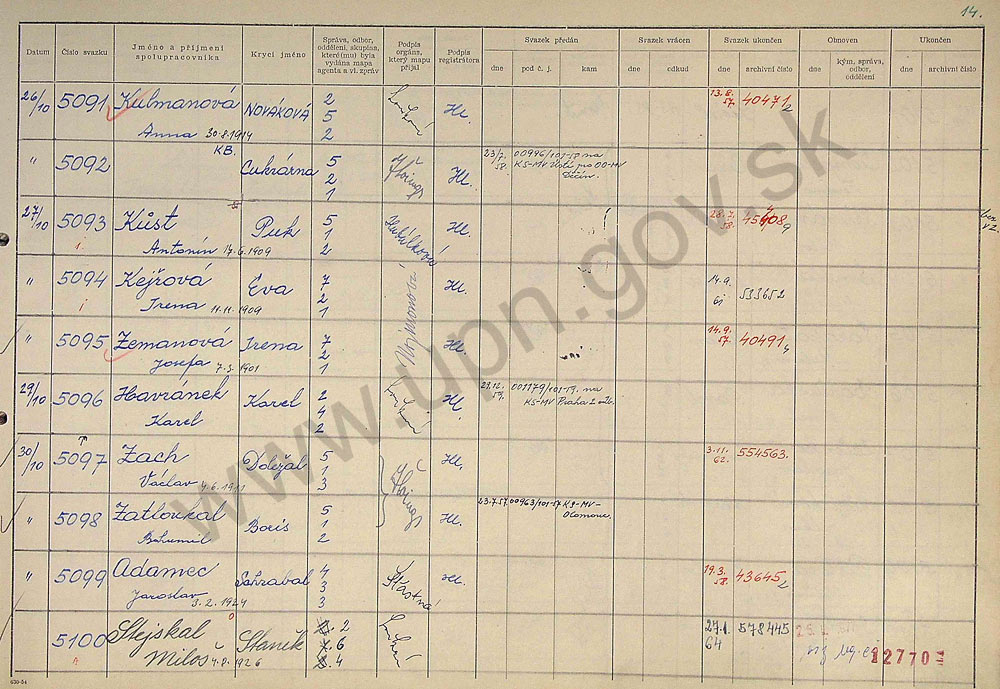 14.
Datum
Číslo svazku
Jméno a příjmení
spolupracovníka
Krycí jméno
Správa, odbor,
oddělení, skupina,
které(mu) byla
vydána mapa
agenta a vl. zpráv
Podpis
orgánu,
který mapu
přijal
Podpis
registrátora
Svazek předán
dne
pod č. j.
kam
Svazek vrácen
dne
odkud
Svazek ukončen
dne
archivní číslo
Obnoven
dne
kým, správa,
odbor,
oddělení
Ukončen
dne
archivní číslo
26/10 5091 Kulmanová NOVÁKOVÁ 2 5 2 Hl. 13.8. 57. 40471/2
Anna 30.8.1914
" 5092 KB. Cukrárna 5 2 1 Hl. 23/7. 58. 00996/101-58 na
KS-MV Ústí pro OO-MV
Děčín.
27/10 5093 Kůst Puk 5 1 2 Hl. 28.7. 58.
Antonín 17.6.1909
" 5094 Kejřová Eva 7 2 1 Hl. 14.9. 61 533652
Irena 11.11.1909
" 5095 Zemanová Irena 7 2 1 Hl. 14.9. 57. 40491
Josefa 7.3.1901
29/10 5096 Havránek Karel 2 4 2 Hl. 001179/101-59. na
KS-MV Praha
Karel
30/10 5097 Zach Doležal 5 1 3 Hl. 3.11. 62. 554563.
Václav 4.6.1911
" 5098 Zatloukal Boris 5 1 2 Hl. 23.7.57. 00963/101-57 KS-MV-
Olomouc.
Bohumil
" 5099 Adamec Sohrabal 4 3 3 Šťastná Hl. 19.3. 58. 43645/2
Jaroslav 3.2.1924
5100 Stejskal Staněk 2 6 4 27.1. 64 578445
Miloš 4.8.1926
12770
www.upn.gov.sk
630-54